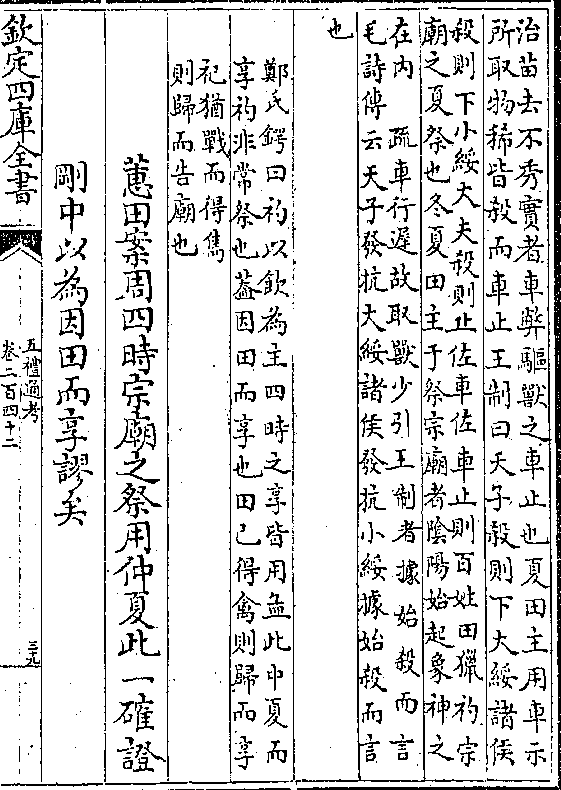 治苗去不秀實者車弊驅獸之車止也夏田主用車示
所取物稀皆殺而車止王制曰天子殺則下大綏諸侯
殺則下小綏大夫殺則止佐車佐車止則百姓田獵礿宗
廟之夏祭也冬夏田主于祭宗廟者陰陽始起象神之
在內　疏車行遲故取獸少引王制者據始殺而言
毛詩傳云天子發抗大綏諸侯發抗小綏據始殺而言
也
鄭氏鍔曰礿以飲為主四時之享皆用孟此中夏而
享礿非常祭也蓋因田而享也田已得禽則歸而享
祀猶戰而得雋
則歸而告廟也
蕙田案周四時宗廟之祭用仲夏此一確證
剛中以為因田而享謬矣
欽定四庫全書
五禮通考
卷二百四十二
三九